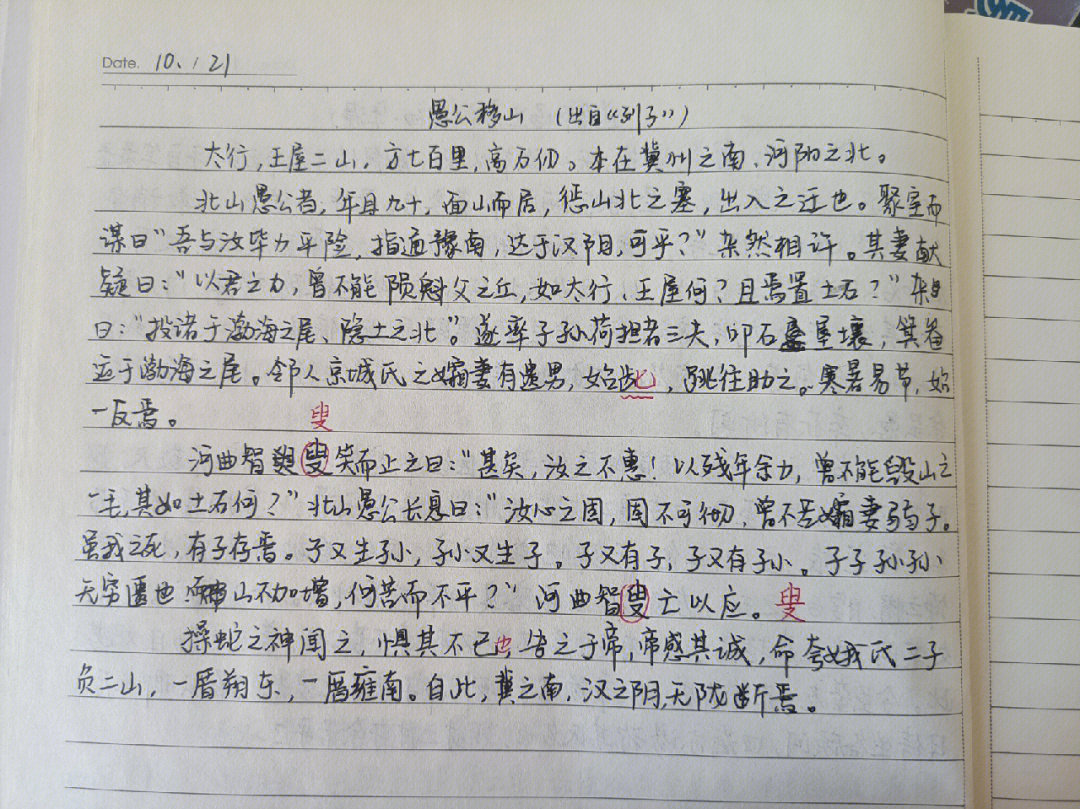 Date. 10. / 21
愚公移山 (出自“列子”)
太行,王屋二山,方七百里,高万仞。本在冀州之南,河阳之北。
北山愚公者,年且九十,面山而居,惩山北之塞,出入之迂也。聚室而
谋曰“吾与汝毕力平险,指通豫南,达于汉阴,可乎?”杂然相许。其妻献
疑曰:“以君之力,曾不能陨魁父之丘,如太行、王屋何?且焉置土石?”杂
曰:“投诸于渤海之尾、隐土之北”。遂率子孙荷担者三夫,叩石垦壤,箕畚
运于渤海之尾。邻人京城氏之孀妻有遗男,始龀,跳往助之。寒暑易节,始
一反焉。
叟
河曲智叟笑而止之曰:“甚矣,汝之不惠!以残年余力,曾不能毁山之
一毛,其如土石何?”北山愚公长息曰:“汝心之固,固不可彻,曾不若孀妻弱子。
虽我之死,有子存焉。子又生孙,孙又生子。子又有子,子又有孙。子子孙孙
无穷匮也,而山不加增,何苦而不平?”河曲智叟亡以应。叟
操蛇之神闻之,惧其不已也,告之于帝,帝感其诚,命夸娥氏二子
负二山,一厝朔东,一厝雍南。自此,冀之南,汉之阴,无陇断焉。